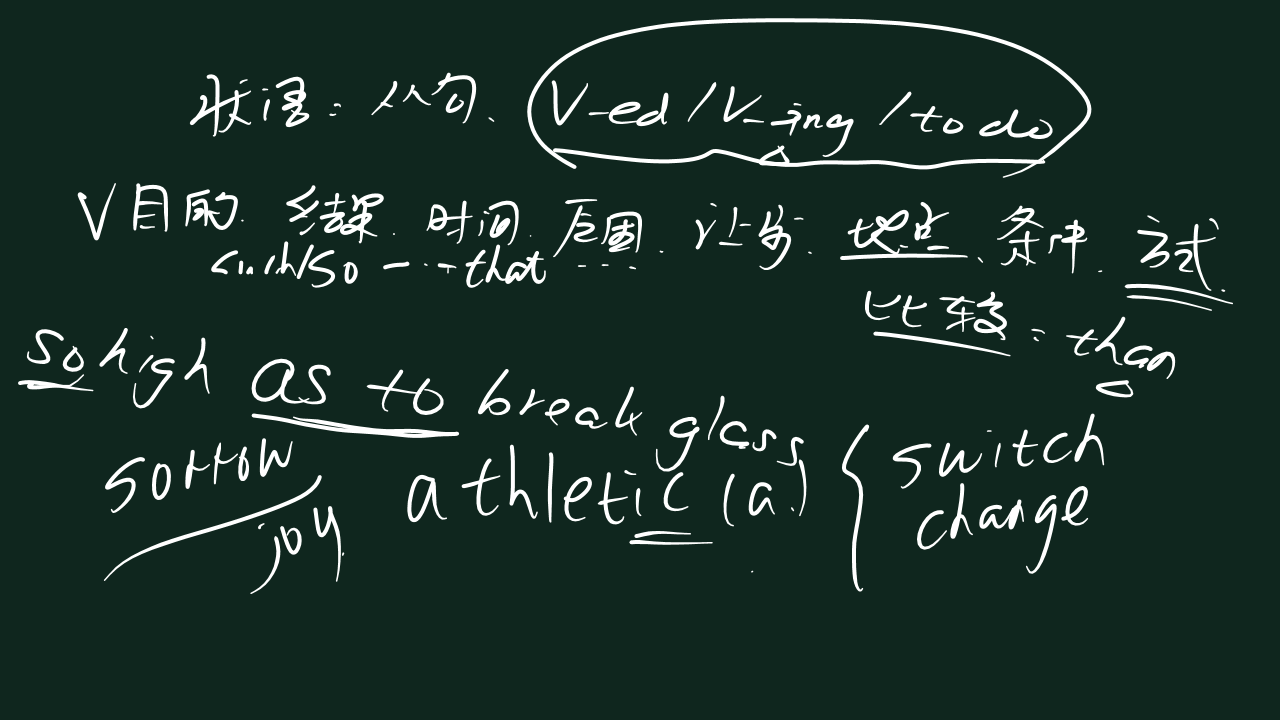 状语: 从句、V-ed / V-ing / to do
V目的. 结果. 时间. 原因. 让步. 地点、条件. 方式.
such/so ----that ....
比较: than
so high as to break glass
sorrow athletic (a.) { switch
joy change